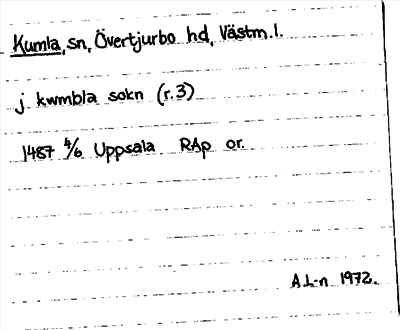 Kumla, sn, Övertjurbo hd, Västm. l.
j kwmbla sokn (r. 3)
1487 4/6 Uppsala RAp or.
A.L-n 1972.